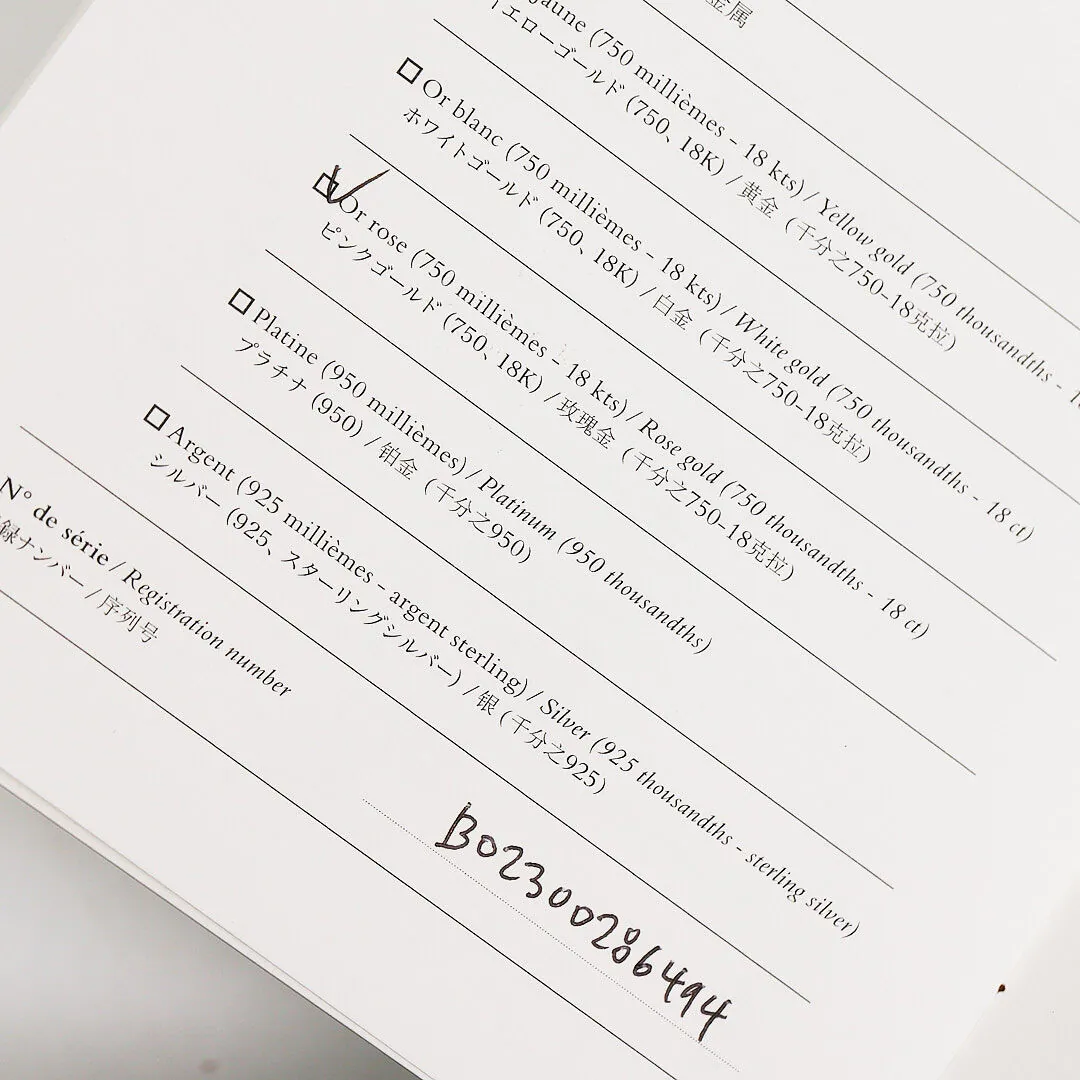 金属
jaune (750 millièmes - 18 kts) / Yellow gold (750 thousandths -
イエローゴールド (750、18K) / 黄金（千分之750-18克拉）
Or blanc (750 millièmes - 18 kts) / White gold (750 thousandths - 18 ct)
ホワイトゴールド (750、18K) / 白金（千分之750-18克拉）
Or rose (750 millièmes - 18 kts) / Rose gold (750 thousandths - 18 ct)
ピンクゴールド (750、18K) / 玫瑰金（千分之750-18克拉）
Platine (950 millièmes) / Platinum (950 thousandths)
プラチナ (950) / 铂金（千分之950）
Argent (925 millièmes - argent sterling) / Silver (925 thousandths - sterling silver)
シルバー (925、スターリングシルバー) / 银（千分之925）
N° de série / Registration number
録ナンバー / 序列号
B02300286494